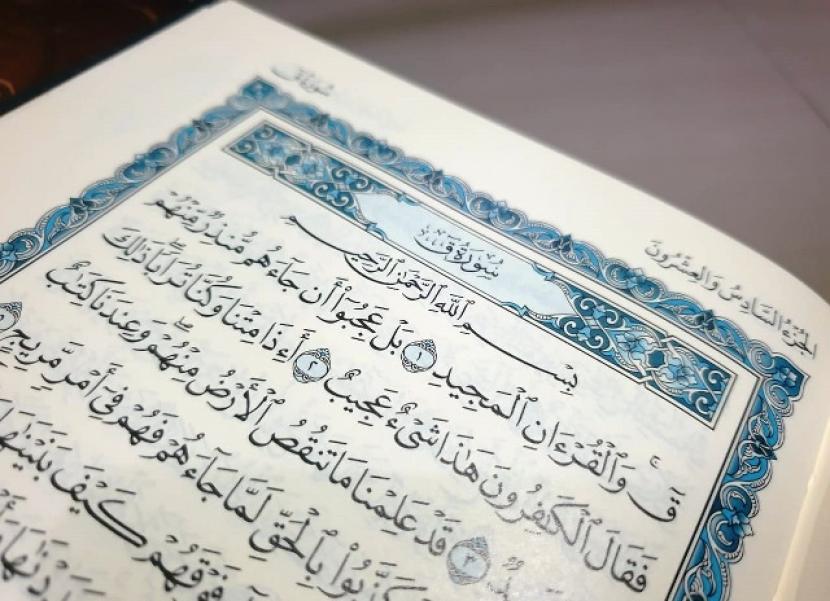 الجُزْءُ السَّادِسُ وَالعِشْرُونَ
سُورَةُ ق
سُورَةُ ق
بِسْمِ ٱللَّهِ ٱلرَّحْمَٰنِ ٱلرَّحِيمِ
قٓ وَٱلْقُرْءَانِ ٱلْمَجِيدِ ١ بَلْ عَجِبُوٓا۟ أَن جَآءَهُم مُّنذِرٌ مِّنْهُمْ
فَقَالَ ٱلْكَٰفِرُونَ هَٰذَا شَىْءٌ عَجِيبٌ ٢ أَءِذَا مِتْنَا وَكُنَّا تُرَابًا ذَٰلِكَ
٣ قَدْ عَلِمْنَا مَا تَنقُصُ ٱلْأَرْضُ مِنْهُمْ وَعِندَنَا كِتَٰبٌ
كَذَّبُوا۟ بِٱلْحَقِّ لَمَّا جَآءَهُمْ فَهُمْ فِىٓ أَمْرٍ مَّرِيجٍ
فَوْقَهُمْ كَيْفَ بَنَيْنَٰهَا